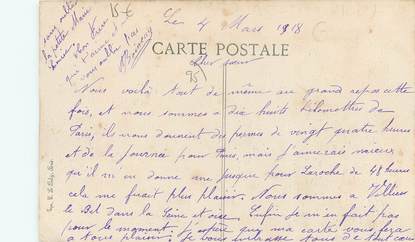 Le 4 Mars 1918
CARTE POSTALE
15 €
95
sans oublier
la petite Marie
ton
qui
vous oublie pas
Nous voilà tout de même au grand repos cette
fois, et nous sommes a dix huits kilometres de
Paris, il nous donnent des permes de vingt quatre heures
et de la journée pour Paris, mais j'aimerais mieux
qu'il m'en donne une jusque pour Laroche de 48 heures
cela me ferait plus plaisir. Nous sommes a Villiers
le Bel dans la Seine et oise. Enfin je m'en fait pas
pour le moment. J'espère que ma carte vous fera
a tous plaisir. Je vous embrasse tous de